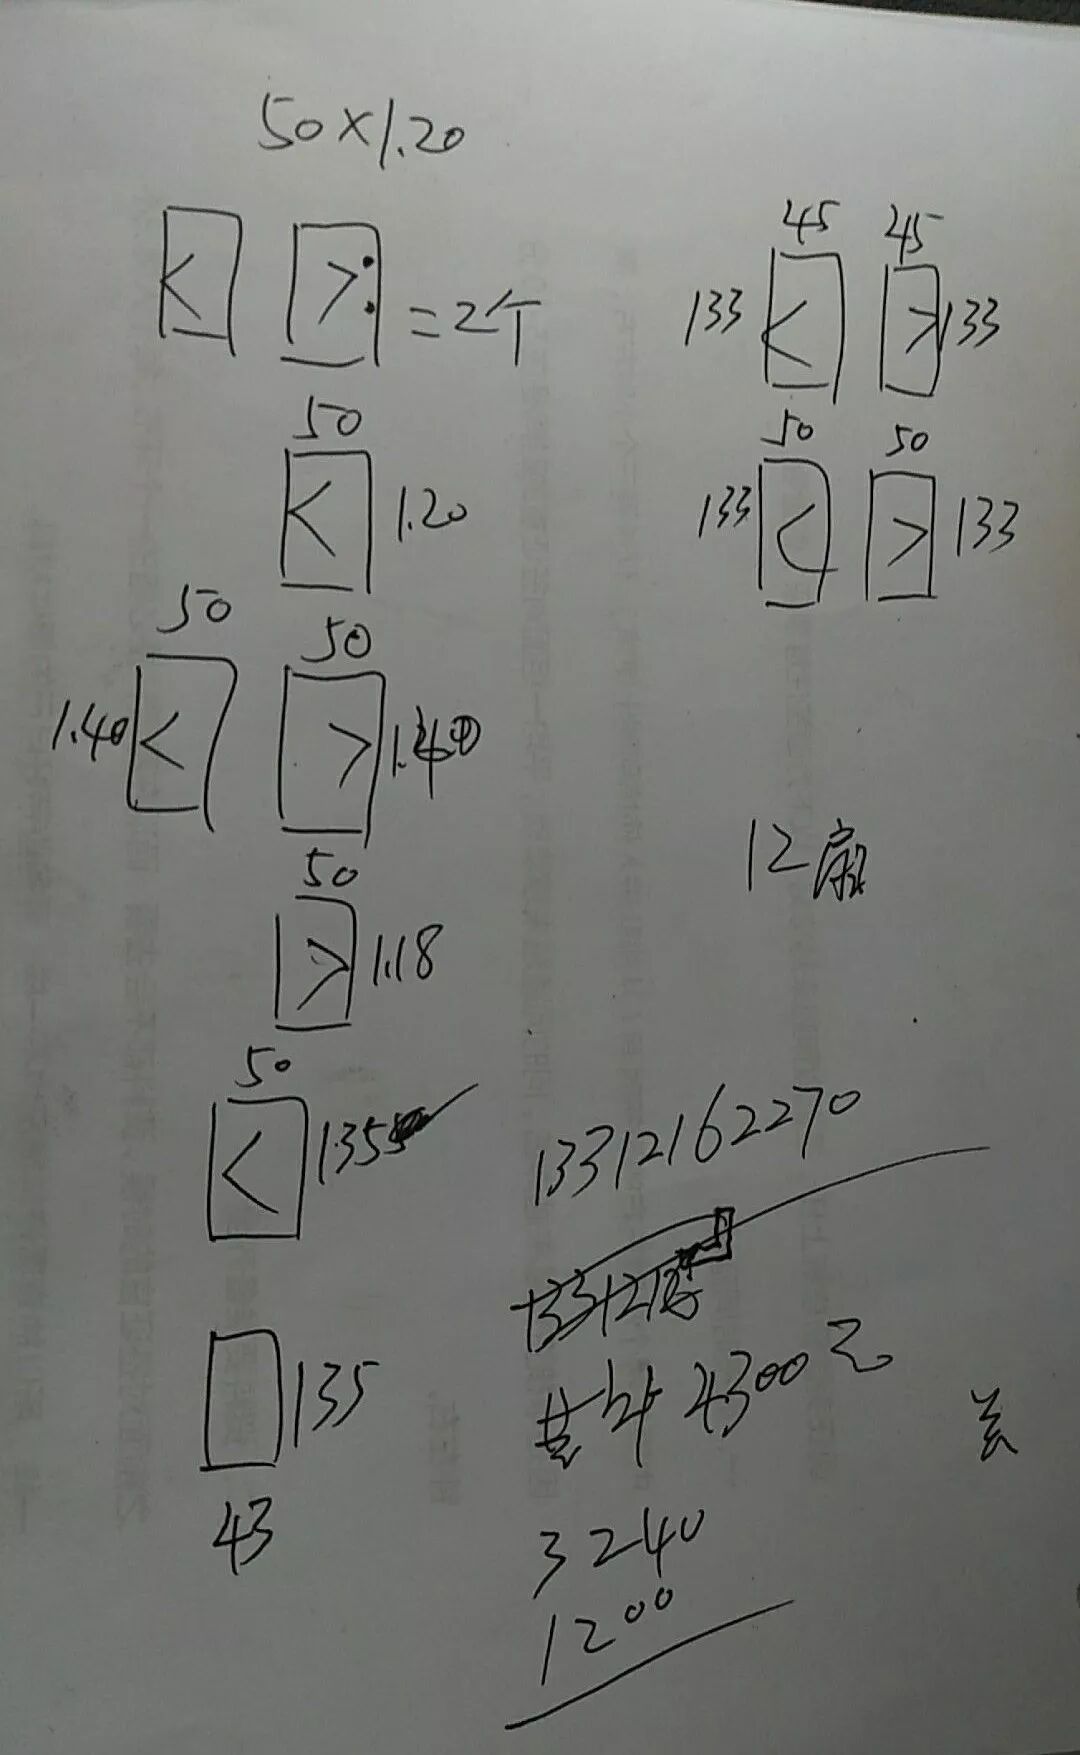 50×1.20
=2个
50
1.20
50 50
1.40 1.40
50
1.18
50
135
135
43
45 45
133 133
50 50
133 133
12扇
13312162270
共计4300元
3240
1200